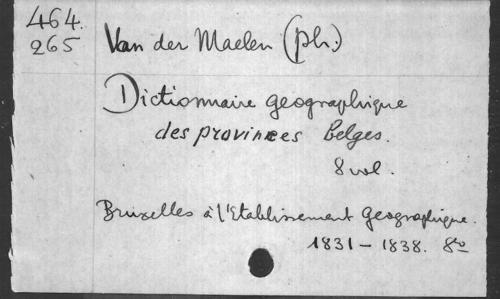 464.
265
Van der Maelen (ph.)
Dictionnaire geographique
des provinces belges.
8 vol.
Bruxelles à l'Etablissement Geographique.
1831 - 1838. 8vo